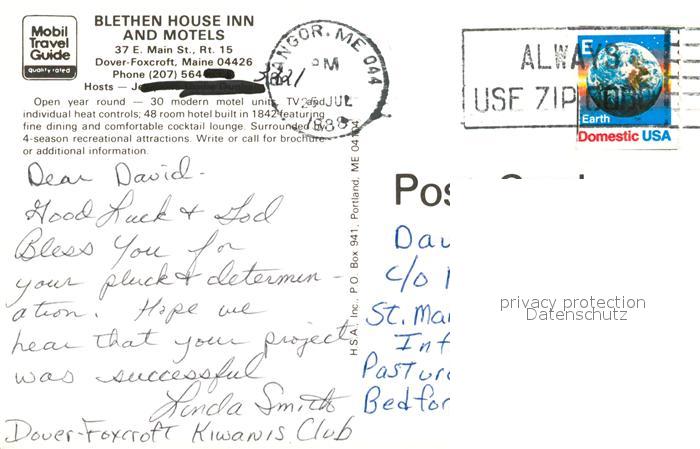 Mobil
Travel
Guide
quality rated
BLETHEN HOUSE INN
AND MOTELS
37 E. Main St., Rt. 15
Dover-Foxcroft, Maine 04426
Phone (207) 564
Hosts — J
Open year round — 30 modern motel units, TV and
individual heat controls; 48 room hotel built in 1842 featuring
fine dining and comfortable cocktail lounge. Surrounded by
4-season recreational attractions. Write or call for brochure
or additional information.
BANGOR, ME 044
PM
25 JUL
1988
ALWAYS
USE ZIP CODE
E
Earth
Domestic USA
Dear David-
Good Luck & God
Bless You for
your pluck & determin-
ation. Hope we
hear that your project
was successful
Linda Smith
Dover-Foxcroft Kiwanis Club
H.S.A., Inc., P.O. Box 941, Portland, ME 04104
Dav
c/o
St. Mar
Inf
Pastur
Bedfor
privacy protection
Datenschutz